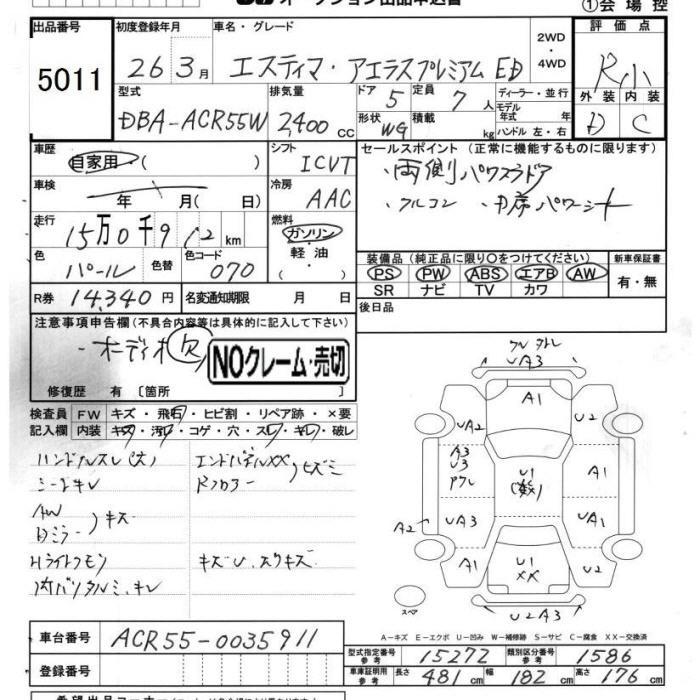 ①会場控
出品番号 初度登録年月 車名・グレード 2WD 評価点
5011 26 3月 エスティマ・アエラスプレミアム ED ・4WD R小
型式 排気量 ドア 5 定員 7人 ディーラー・並行 外装 内装
DBA-ACR55W 2,400cc 形状 WG 積載 kg モデル年式 年式 ハンドル 左・右 D C
車歴 自家用・( ) シフト ICVT セールスポイント (正常に機能するものに限ります)
車検 年 月(日) 冷房 AAC ・両側パワスラドア
走行 15万0千912km 燃料 ガソリン・軽油・( ) ・フルコン ・中席パワーシート
色 パール 色替 色コード 070 装備品(純正品に限り○をつけてください) 新車保証書
PS PW ABS エアB AW 有・無
SR ナビ TV カワ
R券 14,340円 名変通知期限 月 日 後日品
注意事項申告欄(不具合内容等は具体的に記入して下さい)
・オーディオ欠 NOクレーム・売切
修復歴 有 [箇所 ]
検査員 FW キズ・飛石・ヒビ割・リペア跡・×要
記入欄 内装 キズ・汚レ・コゲ・穴・スレ・キレ・破レ
ハンドルスレ(大) エンドパネルXX
シートキレ )ヒズミ
AW
Dミラー )キズ
Hライトクモリ キズU、スリキズ
UA3
A1
UA2 U2
A3
U3 U1 A1
A2 UA3 UA1
A1 U1 U2
XX
スペア U2A3
A-キズ E-エクボ U-凹み W-補修跡 S-サビ C-腐食 XX-交換済
車台番号 ACR55-0035911
登録番号 型式指定番号 参考 15272 類別区分番号 参考 1586
車庫証明用 参考 長さ 481cm 幅 182cm 高さ 176cm